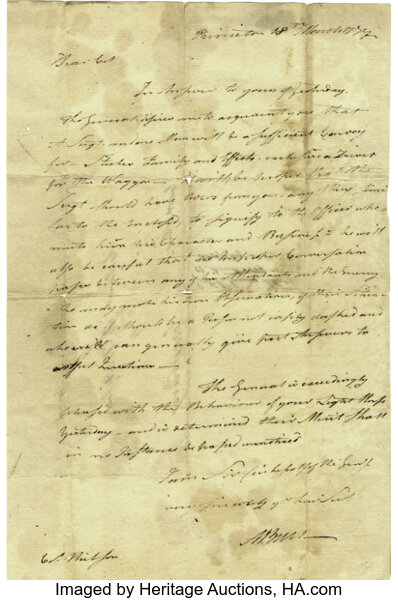 Princeton 18th March 1777
Dear Col
In Answer to yours of Yesterday,
the General desires me to acquaint you that
A Sergt. and one Man will be a sufficient Convoy
for Family and Effects, with a Driver
for the Waggon it will be proper that the
Sergt should have Orders from you, any thing
to the Enclosed, to signify to the Officer who
meets him his Character and Business he will
also be careful that no improper Conversation
passes between any of his Attendants and the Enemy
He may make his own Observations, of their Situa-
tion as should be a Person not easily abashed and
who can generally give pert Answers to
artful Questions
The General is exceedingly
pleased with the Behaviour of your Light Horse
Yesterday and is determined their Merit shall
in no Instance be passed unnoticed
I am Sir
very sincerely yr
A Burr
Col. Neilson
Imaged by Heritage Auctions, HA.com